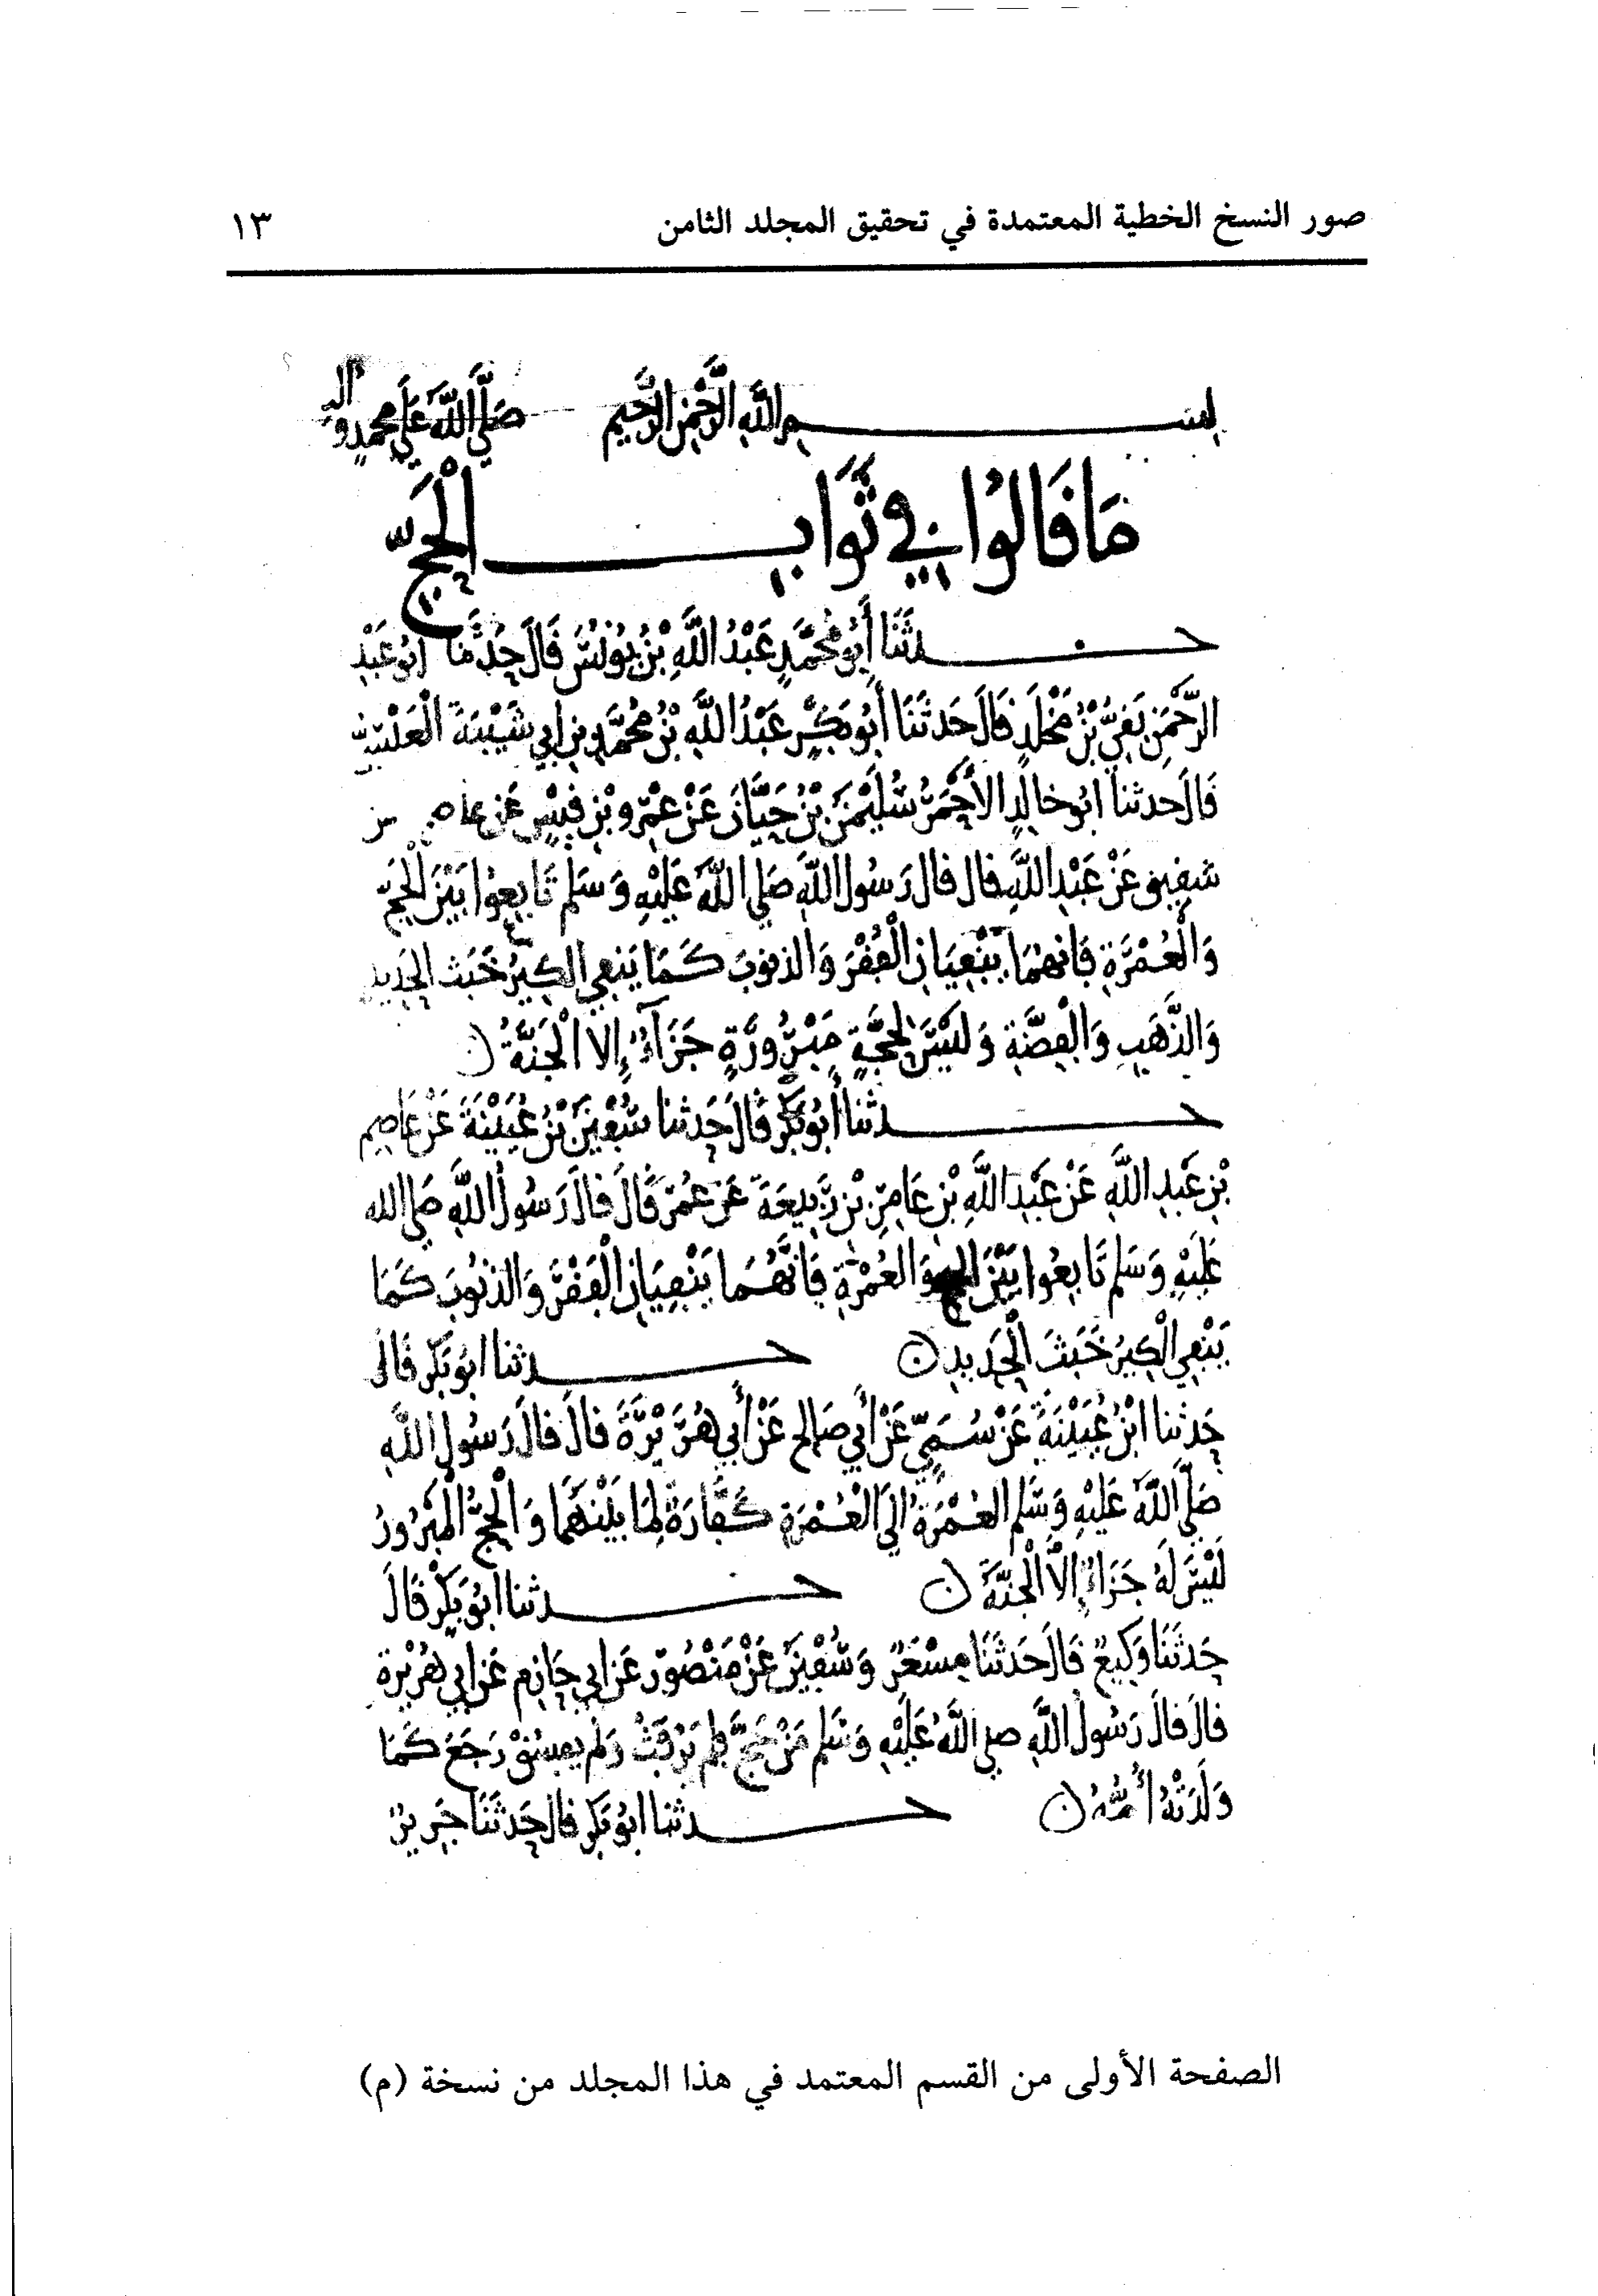 صور النسخ الخطية المعتمدة في تحقيق المجلد الثامن ١٣
بسم الله الرحمن الرحيم صلى الله على محمد وآله
مَا قَالُوا فِي ثَوَابِ الْحَجِّ
حدثنا أبو محمد عبد الله بن يونس قال حدثنا ابو عبد
الرحمن بقي بن مخلد قال حدثنا أبو بكر عبد الله بن محمد بن ابي شيبة العبسي
قال حدثنا ابو خالد الأحمر سليمن بن حيان عن عمرو بن قيس عن عاصم عن
شقيق عن عبد الله قال قال رسول الله صلى الله عليه وسلم تابعوا بين الحج
والعمرة فانهما ينفيان الفقر والذنوب كما ينفي الكير خبث الحديد
والذهب والفضة وليس لحجة مبرورة جزآء إلا الجنة ن
حدثنا أبو بكر قال حدثنا سفين بن عيينة عن عاصم
بن عبيد الله عن عبد الله بن عامر بن ربيعة عن عمر قال قال رسول الله صلى الله
عليه وسلم تابعوا بين الحج والعمرة فانهما ينفيان الفقر والذنوب كما
ينفي الكير خبث الحديد ن حدثنا ابو بكر قال
حدثنا ابن عيينة عن سمي عن أبي صالح عن أبي هريرة قال قال رسول الله
صلى الله عليه وسلم العمرة الى العمرة كفارة لما بينهما والحج المبرور
ليس له جزاء إلا الجنة ن حدثنا ابو بكر قال
حدثنا وكيع قال حدثنا مسعر وسفين عن منصور عن ابي حازم عن ابي هريرة
قال قال رسول الله صلى الله عليه وسلم من حج فلم يرفث ولم يفسق رجع كما
ولدته أمه ن حدثنا ابو بكر قال حدثنا جرير
الصفحة الأولى من القسم المعتمد في هذا المجلد من نسخة (م)